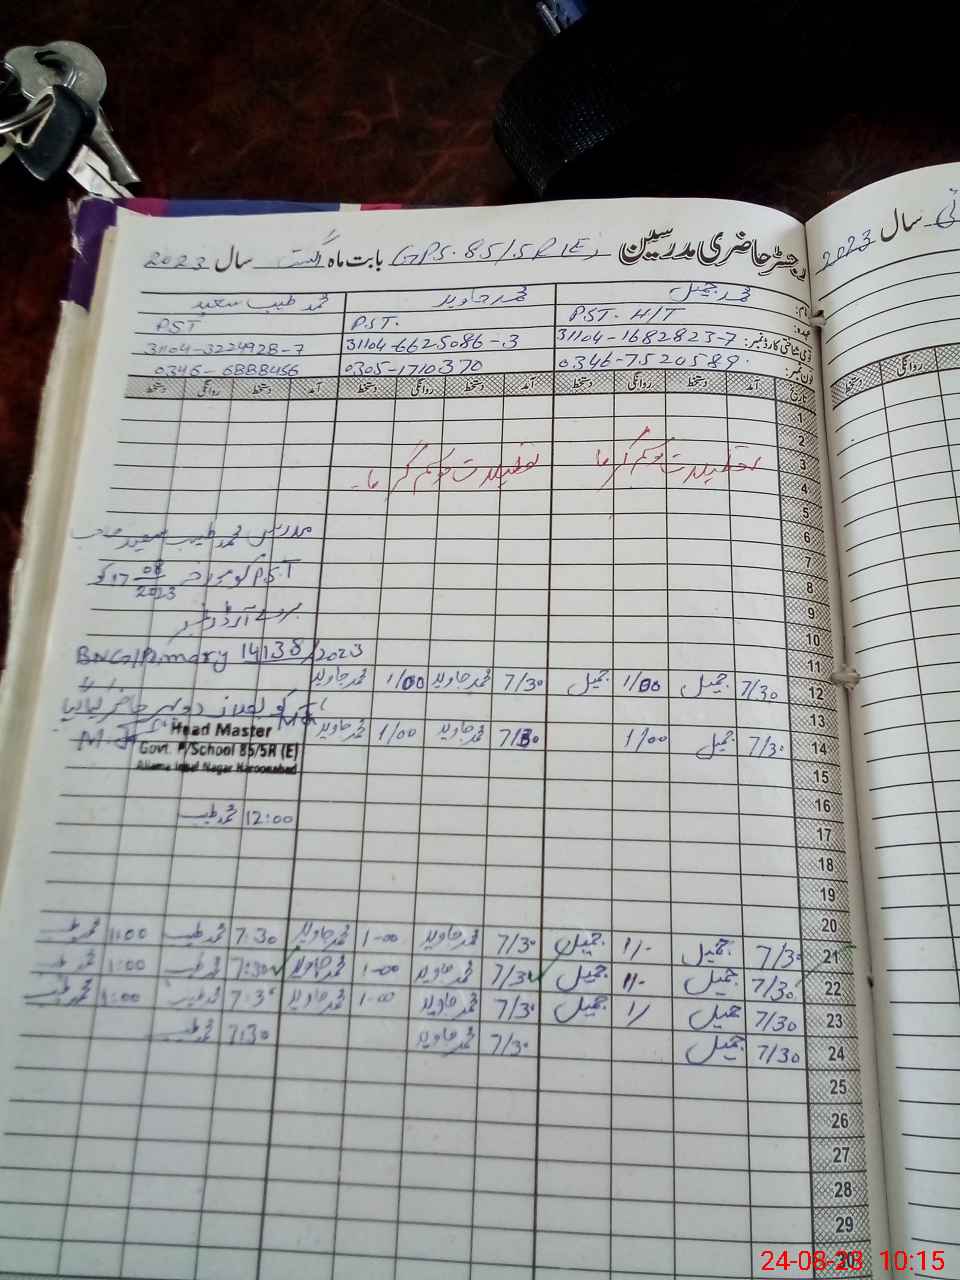 رجسٹر حاضری مدرسین GPS. 85/5R(E) بابت ماہ اگست سال 2023
سال 2023
نام: محمد جمیل محمد جاوید محمد طیب سعید
عہدہ: PST. H/T PST. PST
قومی شناختی کارڈ نمبر: 31104-1682823-7 31104-6625086-3 31104-3224928-7
فون نمبر: 0346-7520589 0305-1710370 0346-6888456
تاریخ آمد دستخط روانگی دستخط آمد دستخط روانگی دستخط آمد دستخط روانگی دستخط
روانگی دستخط
1
2
3 تعطیلات موسم گرما تعطیلات موسم گرما
4
5
6 مدرس محمد طیب سعید صاحب
7
8 P.S.T کو مورخہ 17 08/2023 کو
9 بروئے آرڈر نمبر
10
11 BNG/Primary 14138/2023
12 7/30 جمیل 1/00 جمیل 7/30 محمد جاوید 1/00 محمد جاوید
13 کو بعد از دوپہر حاضر کیا گیا
14 7/30 جمیل 1/00 7/30 محمد جاوید 1/00 محمد جاوید
Head Master
Govt. P/School 85/5R (E)
Allama Iqbal Nagar Haroonabad
15
16
17 12:00 محمد طیب
18
19
20
21 7/30 جمیل 1/- جمیل 7/30 محمد جاوید 1-00 محمد جاوید 7:30 محمد طیب 1:00 محمد طیب
22 7/30 جمیل 1/- جمیل 7/30 محمد جاوید 1-00 محمد جاوید 7:30 محمد طیب 1:00 محمد طیب
23 7/30 جمیل 1/ جمیل 7/30 محمد جاوید 1-00 محمد جاوید 7:30 محمد طیب 1:00 محمد طیب
24 7/30 جمیل 7/30 محمد جاوید 7:30 محمد طیب
25
26
27
28
29
30
24-08-23 10:15